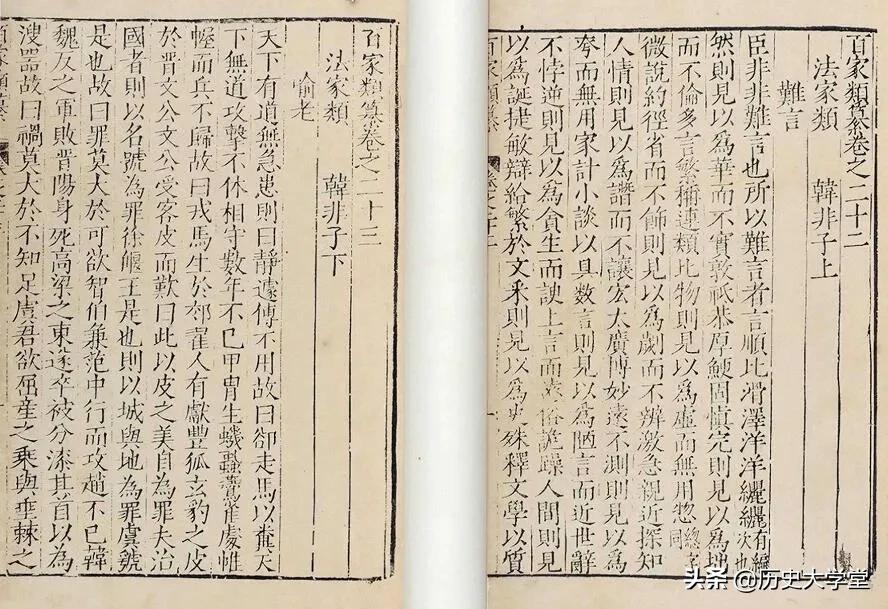 百家類纂卷之二十二
法家類 韓非子上
難言
臣非非難言也所以難言者言順比滑澤洋洋纚纚有編次也
然則見以爲華而不實敦祇恭厚鯁固愼完則見以爲地
而不倫多言繁稱連類比物則見以爲虛而無用惣總字同
微說約徑省而不飾則見以爲劌而不辨激急親近探知
人情則見以爲譖而不讓宏大廣博妙遠不測則見以爲
夸而無用家計小談以具數言則見以爲陋言而近世辭
不悖逆則見以爲貪生而諛上言而遠俗詭躁人間則見
以爲誕捷敏辯給繁於文采則見以爲史殊釋文學以質
百家類纂
百家類纂卷之二十三
法家類 韓非子下
喻老
天下有道無急患則曰靜遽傳不用故曰卻走馬以糞天
下無道攻擊不休相守數年不已甲冑生蟣蝨鷰雀處帷
幄而兵不歸故曰戎馬生於郊翟人有獻豐狐玄豹之皮
於晉文公文公受客皮而歎曰此以皮之美自為罪夫治
國者則以名號為罪徐偃王是也則以城與地為罪虞虢
是也故曰罪莫大於可欲智伯兼范中行而攻趙不已韓
魏反之軍敗晉陽身死高梁之東遂卒被分漆其首以為
溲器故曰禍莫大於不知足虞君欲屈產之乘與垂棘之
百家類纂
头条 @历史大学堂